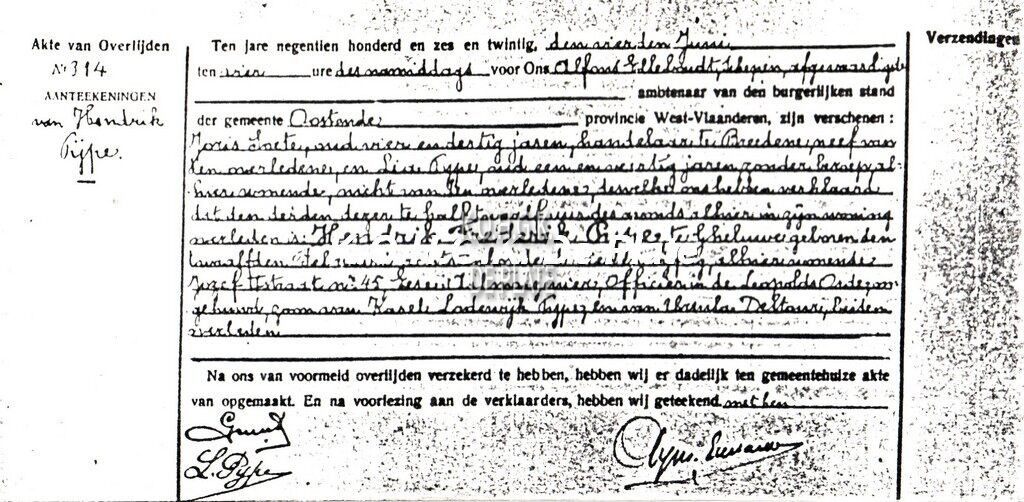 Akte van Overlijden
N° 314
AANTEEKENINGEN
van Hendrik
Pype.
Ten jare negentien honderd en zes en twintig, den vierden Juni
ten vier ure des namiddags voor Ons Alfons Schepen, afgevaardigde
ambtenaar van den burgerlijken stand
der gemeente Oostende provincie West-Vlaanderen, zijn verschenen :
Joris oud vier en dertig jaren, handelaar te Breedene, neef van
den overledene, en Pype, oud een en jaren, zonder beroep, al-
hier wonende, nicht van den overledene, dewelke ons hebben verklaard
dat den derden dezer te half twaalf ure des avonds alhier in zijn woning
overleden is: Hendrik Frederik Pype, te Gheluwe geboren den
twaalfden alhier wonende
Jozef II straat n° 45, Officier in de Leopolds Orde, on-
gehuwd, zoon van Karel Lodewijk Pype, en van Ursula beiden
overleden
Na ons van voormeid overlijden verzekerd te hebben, hebben wij er dadelijk ten gemeentehuize akte
van opgemaakt. En na voorlezing aan de verklaarders, hebben wij geteekend met hen
L. Pype
Verzendingen